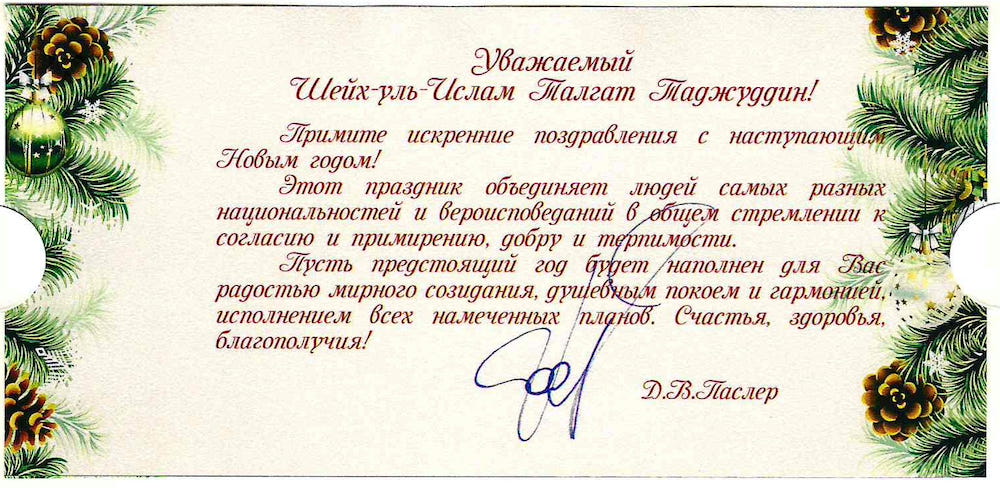 Уважаемый
Шейх-уль-Ислам Талгат Таджуддин!
Примите искренние поздравления с наступающим
Новым годом!
Этот праздник объединяет людей самых разных
национальностей и вероисповеданий в общем стремлении к
согласию и примирению, добру и терпимости.
Пусть предстоящий год будет наполнен для Вас
радостью мирного созидания, душевным покоем и гармонией,
исполнением всех намеченных планов. Счастья, здоровья,
благополучия!
Д.В.Паслер